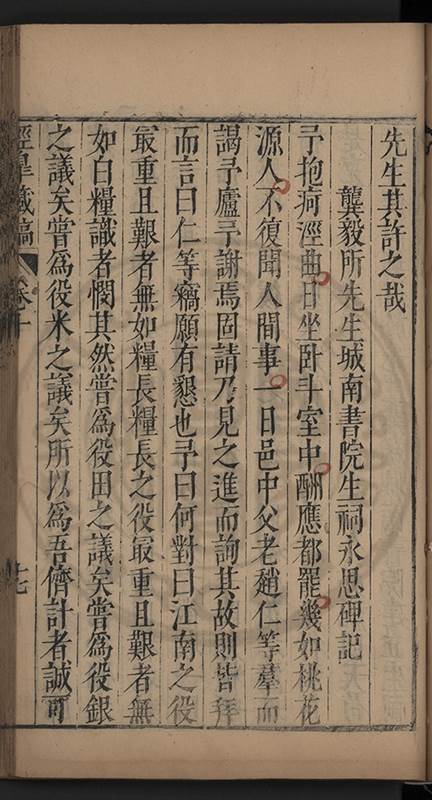 先生其許之哉
龔毅所先生城南書院生祠永思碑記
予抱痾涇曲日坐卧斗室中酬應都罷幾如桃花
源人不復聞人間事一日邑中父老趙仁等羣而
謁予廬予謝焉固請乃見之進而詢其故則皆拜
而言曰仁等竊願有懇也予曰何對曰江南之役
最重且艱者無如糧長糧長之役最重且艱者無
如白糧識者憫其然嘗爲役田之議矣嘗爲役銀
之議矣嘗爲役米之議矣所以爲吾儕計者誠可
涇皋藏稿 卷十 十七